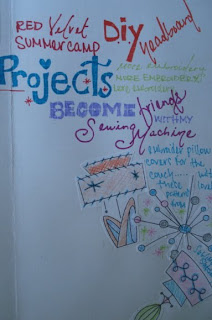 RED Velvet
SUMMERCAMP
Diy
headboard
Projects
more embroidery
MORE EMBROIDERY
BECOME friends
WITH MY
Sewing Machine
embroider pillow
covers for the
couch......
these